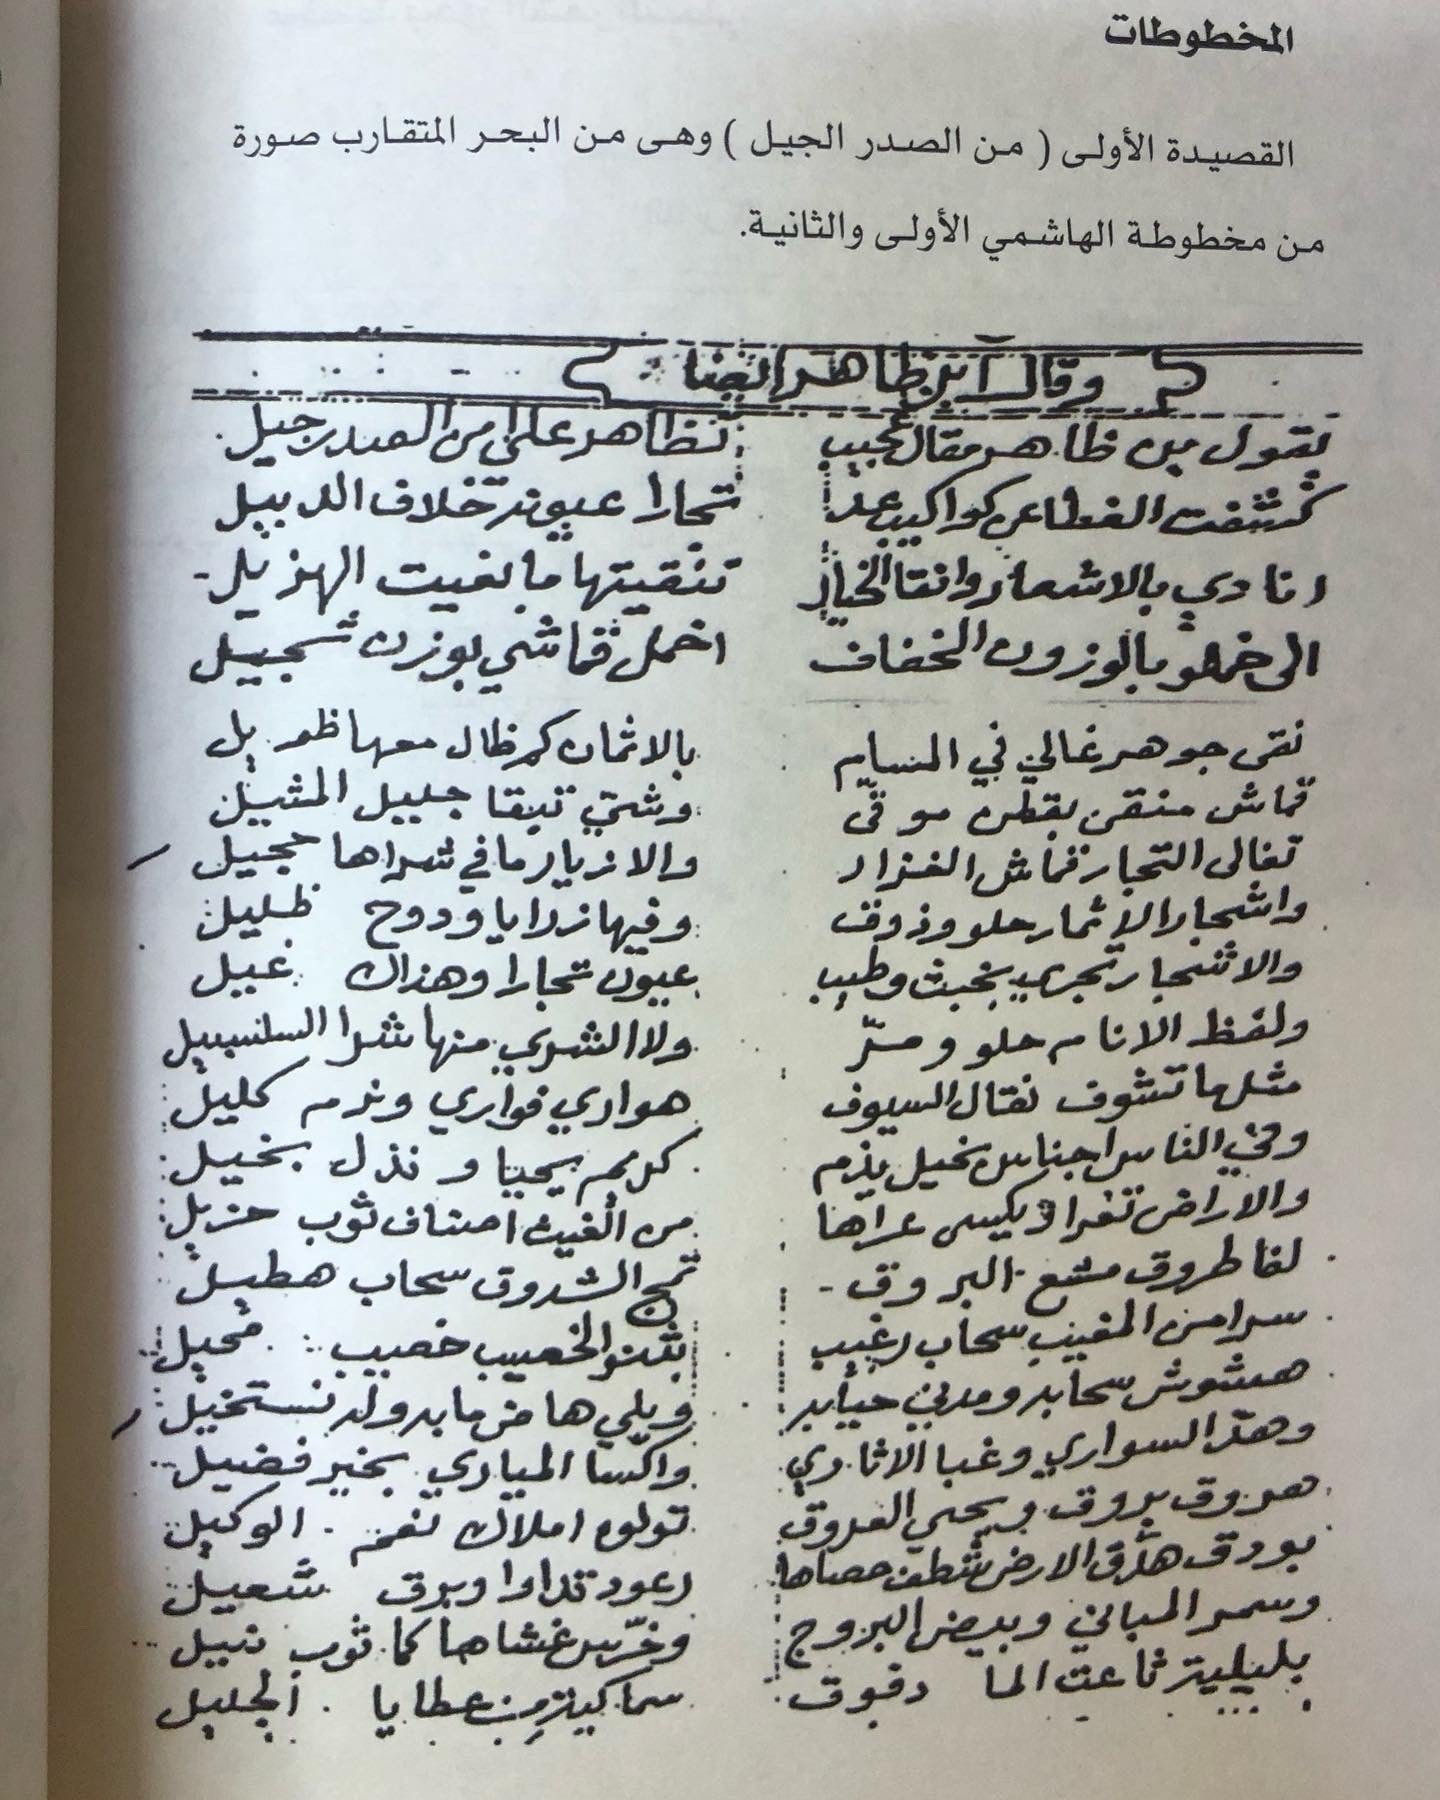 المخطوطات
القصيدة الأولى ( من الصدر الجيل ) وهى من البحر المتقارب صورة
من مخطوطة الهاشمي الأولى والثانية.
وقال ابن ظاهر ايضا
نقول بن ظاهر مقال عجيب تظاهر علي من الصدر جيل
كشفت الغطا عن كواكيب عدا تجارا عيونه خلاف الدبيل
انادي بالاشعار وانقا الخيار تنقيتها ما بغيت الهزيل
الى حملو بالوزون الخفاف احمل قماشي بوزن ثجيل
نقى جوهر غالي في المسام بالاثمان كم ظال معها ظويل
قماش منقى بقطن موقى وشي تبقا جليل المثيل
تغالى التجار قماش الغزار والازيار ما في شراها حجيل
واشجار الاثمار حلو وذوق وفيها زرايا ودوح ظليل
والاشجار تجري بخبث وطيب عيون تجارا وهذاك غبيل
ولفظ الانام حلو ومرّ ولا الشري منها شرا السلسبيل
مثلها تشوف نقال السيوف هواري فواري وثرم كليل
وفي الناس اجناس بخيل يذم كريم يحيا ونذل بخيل
والاراض تعرا ويكسى عراها من الغيث اصناف ثوب جزيل
لفا طروق مشع البروق تمج الشدوق سحاب هطيل
سرا من المغيب سحاب رغيب الخصيب خصيب محيل
هشوش سحابه ومدني حيابه
وهذا السواري وغبا الاثاري واكسا المياري بخير فضيل
هروق بروق ويحيي العروق تولوه املاك نعم الوكيل
بودق هدق الارض شطف حصاها رعود تداوا وبرق شعيل
وسمر المباني وبيض البروج وخرس غشاها كما ثوب نيل
بليلية ثاعت الما دفوق سماكية من عطايا الجليل